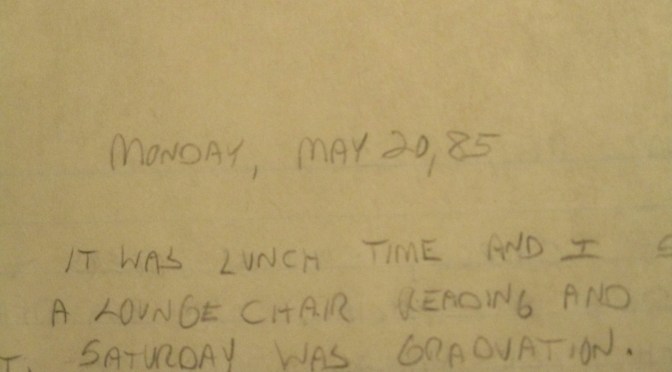 MONDAY, MAY 20, 85
IT WAS LUNCH TIME AND I S
A LOUNGE CHAIR READING AND
T. SATURDAY WAS GRADUATION.